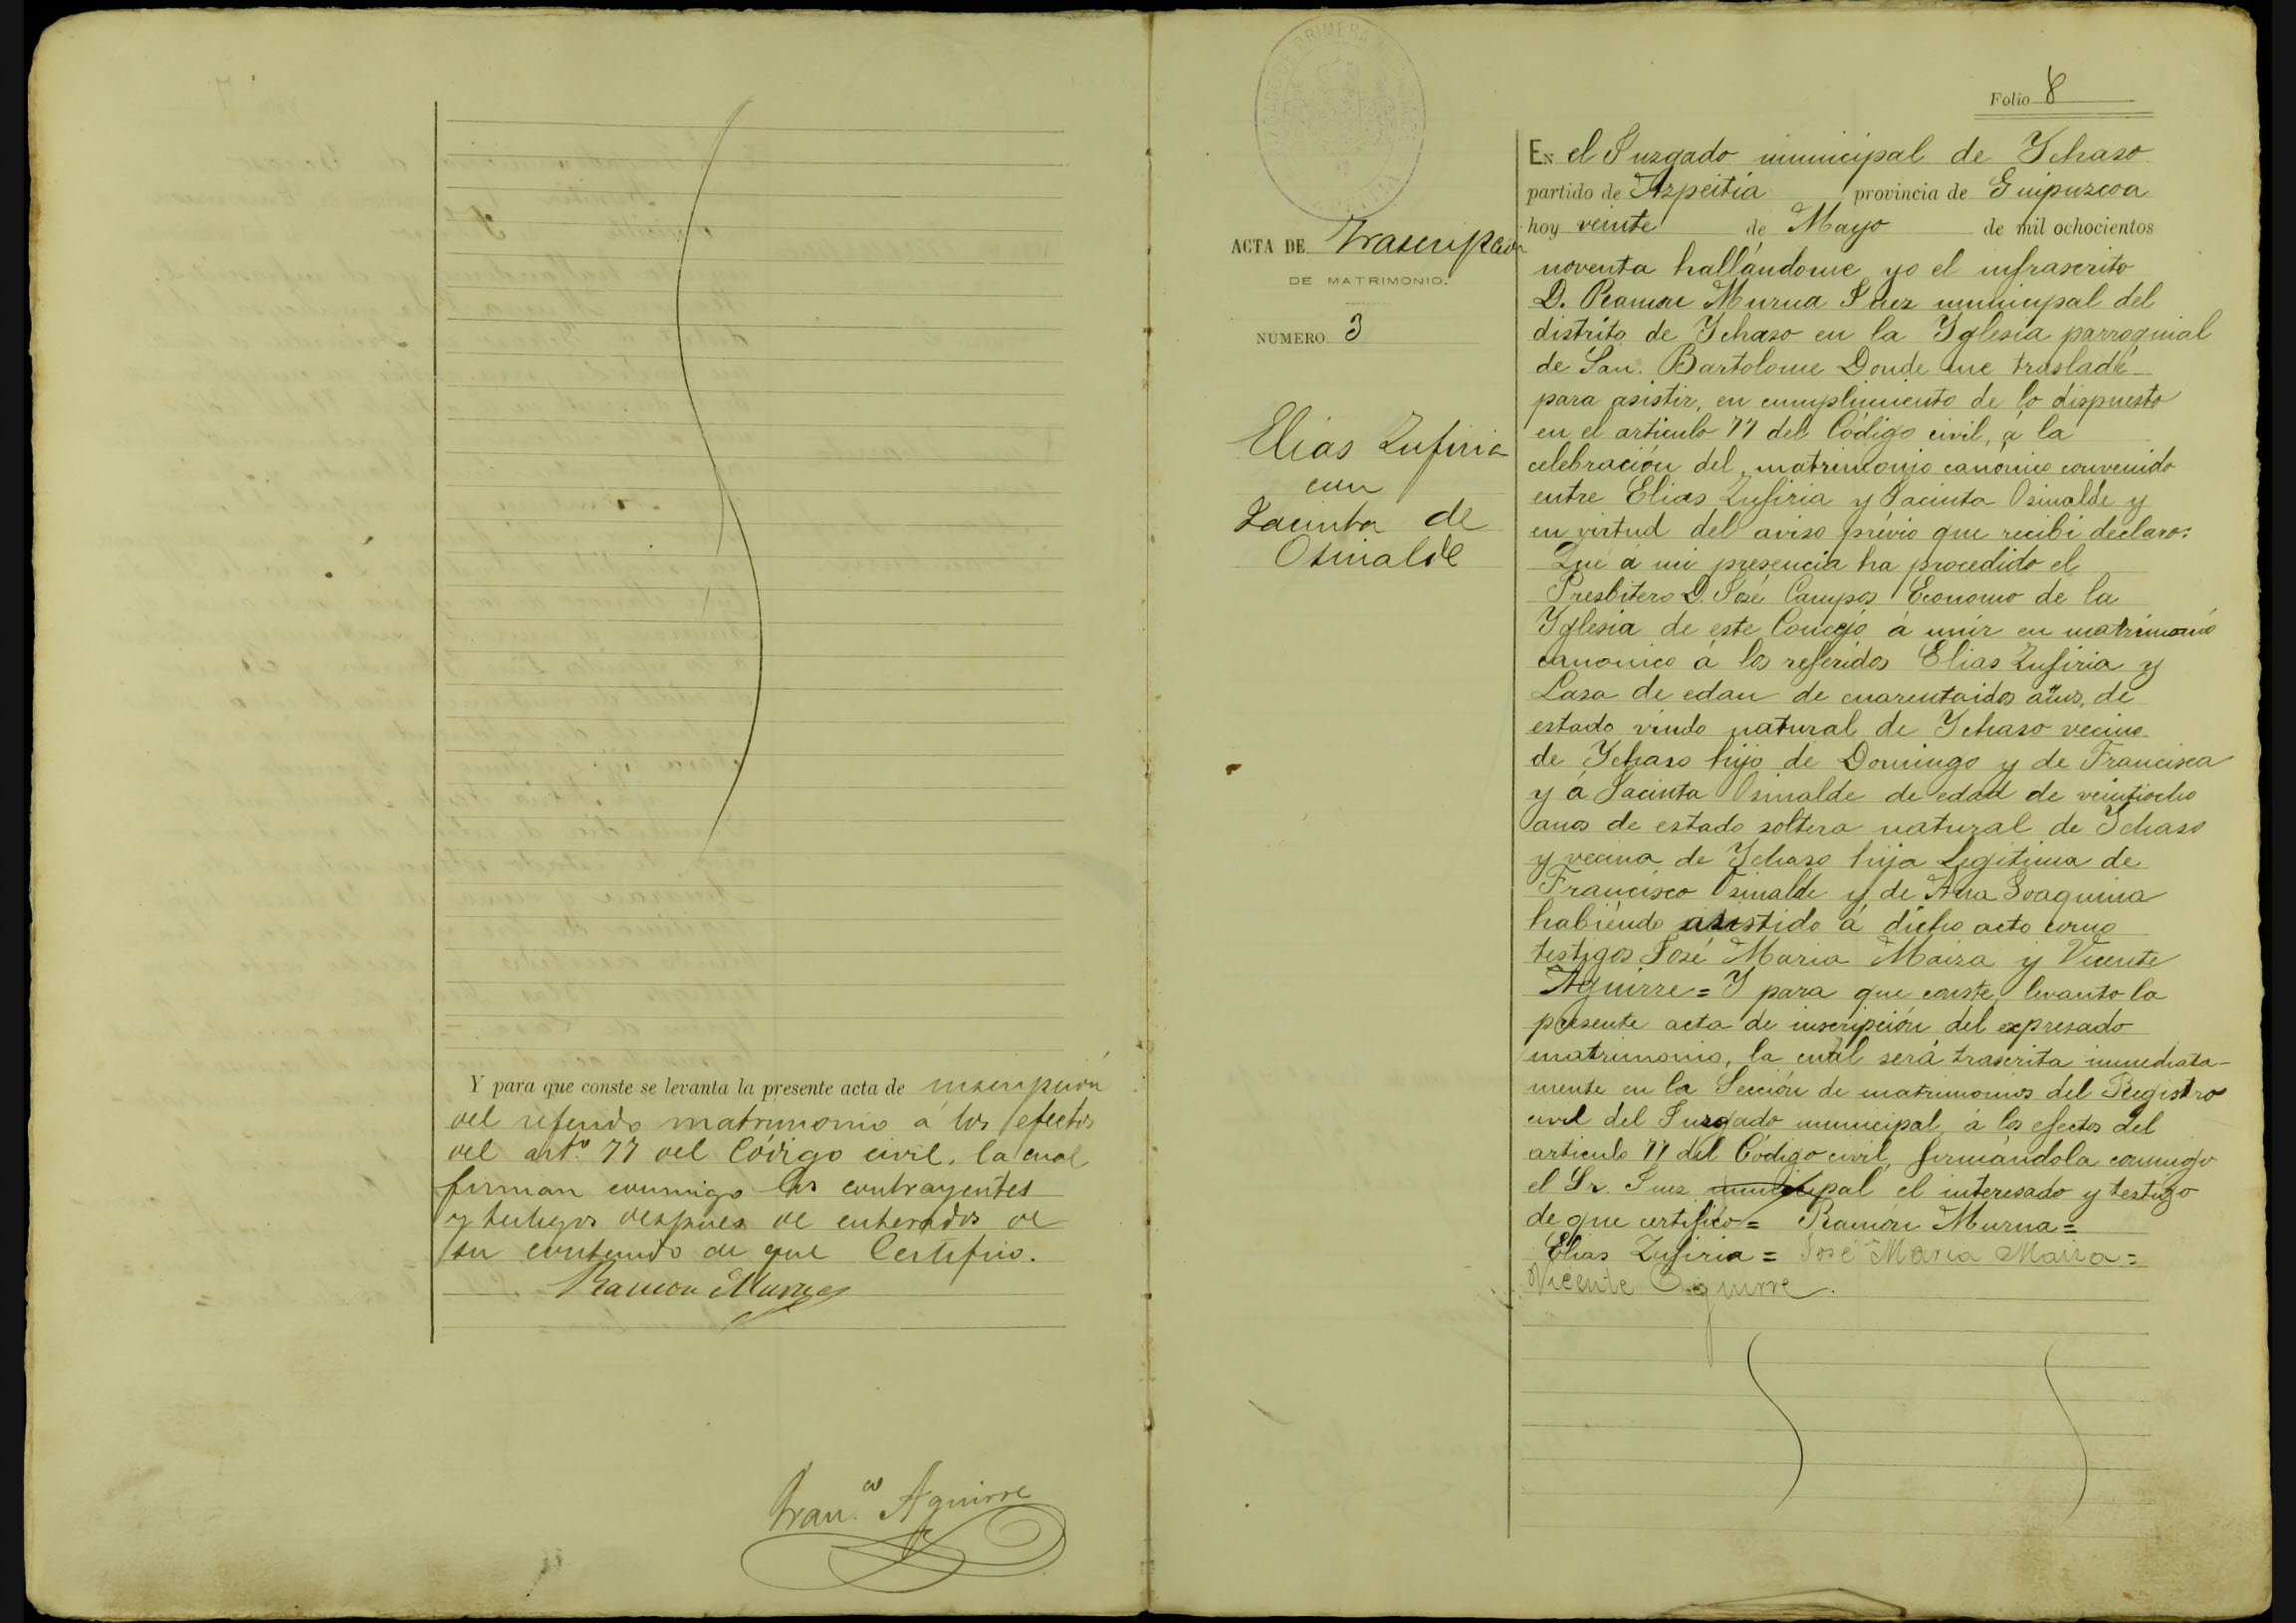 Y para que conste se levanta la presente acta de inscripción
del referido matrimonio á los efectos
del artº. 77 del Código civil, la cual
firman conmigo los contrayentes
y testigos despues de enterados de
su contenido de que Certifico.
Ramon Murua
Fran.co Aguirre
Folio 8
ACTA DE Trascripcion
DE MATRIMONIO.
NÚMERO 3
Elias Zufiria
con
Jacinta de
Osinalde
En el Juzgado municipal de Ychaso
partido de Azpeitia provincia de Guipuzcoa
hoy veinte de Mayo de mil ochocientos
noventa hallándome yo el infrascrito
D. Ramon Murua Juez municipal del
distrito de Ychaso en la Yglesia parroquial
de San. Bartolome Donde me trasladé
para asistir, en cumplimiento de lo dispuesto
en el articulo 77 del Código civil, á la
celebración del matrimonio canónico convenido
entre Elias Zufiria y Jacinta Osinalde y
en virtud del aviso prévio que recibi declaro:
Qué á mi presencia ha procedido el
Presbitero D. José Campos Economo de la
Yglesia de este Concejo á unir en matrimonio
canonico á los referidos Elias Zufiria y
Lasa de edan de cuarentaidos años, de
estado viudo natural de Ychaso vecino
de Ychaso hijo de Domingo y de Francisca
y á Jacinta Osinalde de edad de veintiocho
anos de estado soltera natural de Ychaso
y vecina de Ychaso hija Legitima de
Francisco Osinalde y de Ana Joaquina
habiendo asistido á dicho acto como
testigos José Maria Maiza y Vicente
Aguirre = Y para que conste, levanto la
presente acta de inscripción del expresado
matrimonio, la cuál será trascrita immediata-
mente en la Sección de matrimonios del Registro
civil del Juzgado municipal, á los efectos del
articulo 77 del Código civil, firmándola conmigo
el Sr. Juez municipal el interesado y testigo
de que certifico = Ramón Murua =
Elias Zufiria = José Maria Maiza =
Vicente Aguirre.